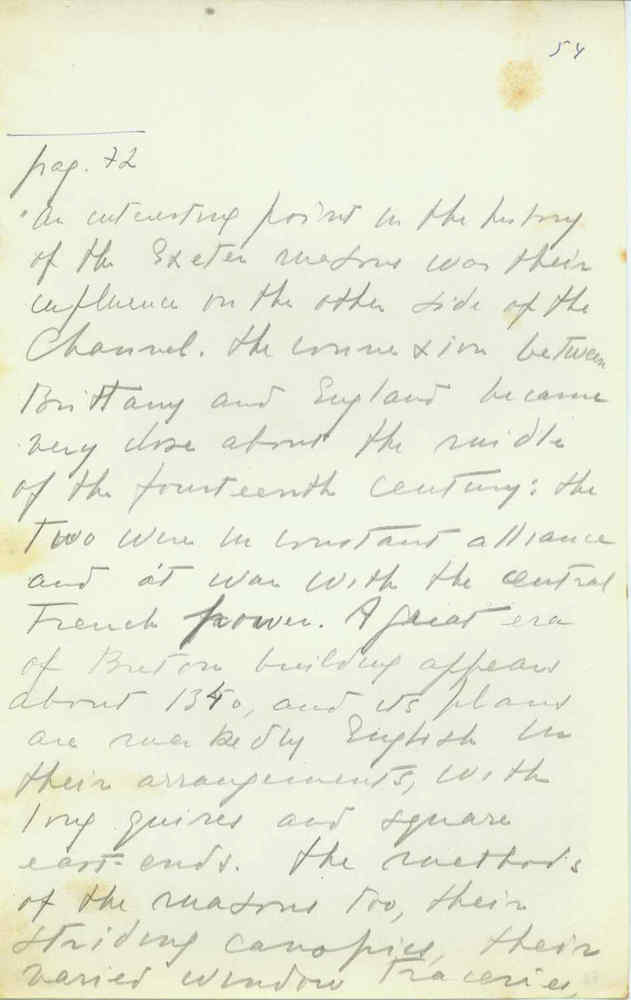 54
pag. 72
"An interesting point in the history
of the Exeter masons was their
influence on the other side of the
Channel. The connexion between
Brittany and England became
very close about the midle
of the fourteenth century: the
two were in constant alliance
and at war with the central
French power. A great era
of Breton building appears
about 1340, and its plans
are markedly English in
their arrangements, with
long quires and square
east-ends. The methods
of the masons too, their
striding canopies, their
varied window traceries